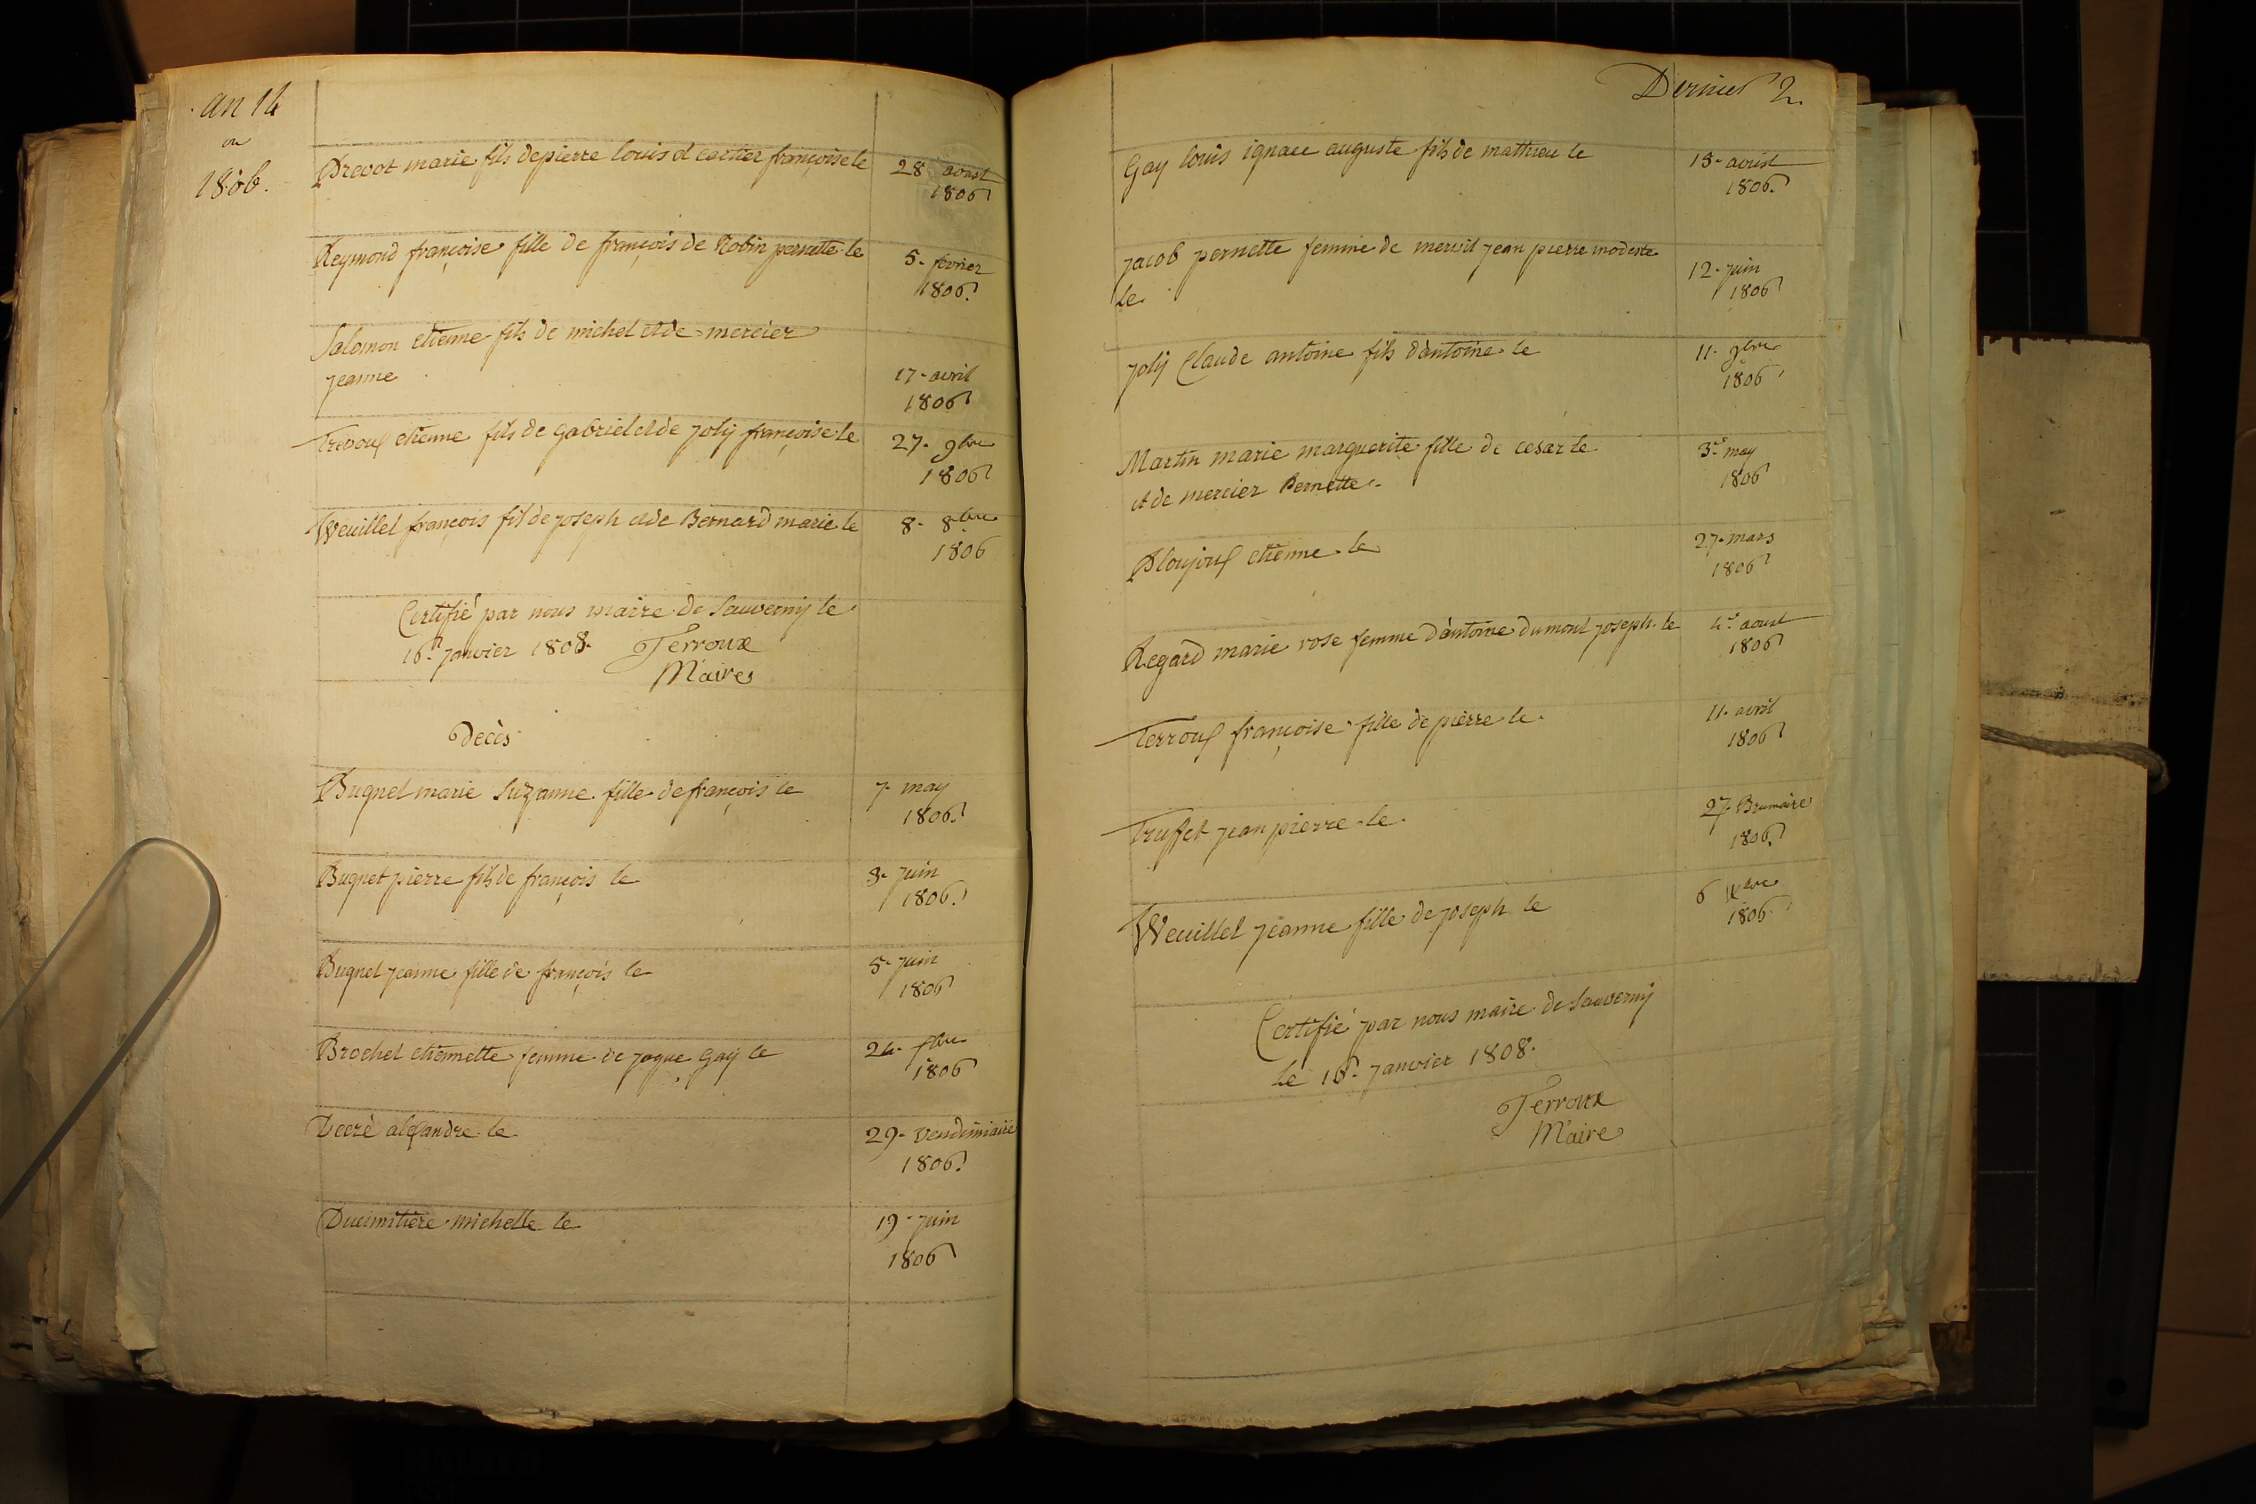 an 14
ou
1806.
Prevot marie fils de pierre louis et cartier françoise le 28 aoust
1806
Reymond françoise fille de françois de Robin pernette le 5. fevrier
1806.
Salomon etienne fils de michel et de mercier
jeanne 17. avril
1806
Trevoux etienne fils de gabriel et de joly françoise le 27. 9bre
1806
Weuillet françois fils de joseph et de Bernard marie le 8. 8bre
1806
Certifié par nous maire de Sauverny le
16. janvier 1808. Terroux
Maire
Decès
Bugnet marie Suzanne fille de françois le 7. may
1806.
Bugnet pierre fils de françois le 8. juin
1806.
Bugnet jeanne fille de françois le 5. juin
1806
Brochet etiennette femme de jaque Gay le 24. 7bre
1806
Decré alexandre le 29. vendimiaire
1806.
Ducimitière michelle le 19. juin
1806
Dernier 2.
Gay louis ignace auguste fils de mathieu le 18. avril
1806.
jacob pernette femme de jean pierre modeste
le 12. juin
1806
joly Claude antoine fils d'antoine le 11. 9bre
1806
Martin marie marguerite fille de cesar le 3. may
et de mercier Pernette. 1806
Ploujoux etienne le 27. mars
1806
Regard marie rose femme d'antoine dumont joseph le 4. aoust
1806
Terroux françoise fille de pierre le 11. avril
1806
Truffet jean pierre le 27. Brumaire
1806.
Weuillet jeanne fille de joseph le 6
1806.
Certifié par nous maire de Sauverny
le 16. janvier 1808.
Terroux
Maire